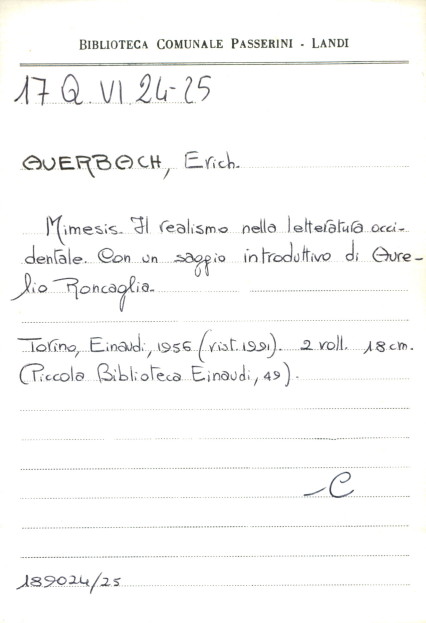 BIBLIOTECA COMUNALE PASSERINI - LANDI
17 Q VI 24-25
AUERBACH, Erich.
Mimesis. Il realismo nella letteratura occi-
dentale. Con un saggio introduttivo di Aure-
lio Roncaglia.
Torino, Einaudi, 1956 (rist. 1991). 2 voll. 18 cm.
(Piccola Biblioteca Einaudi, 49).
-C
189024/25